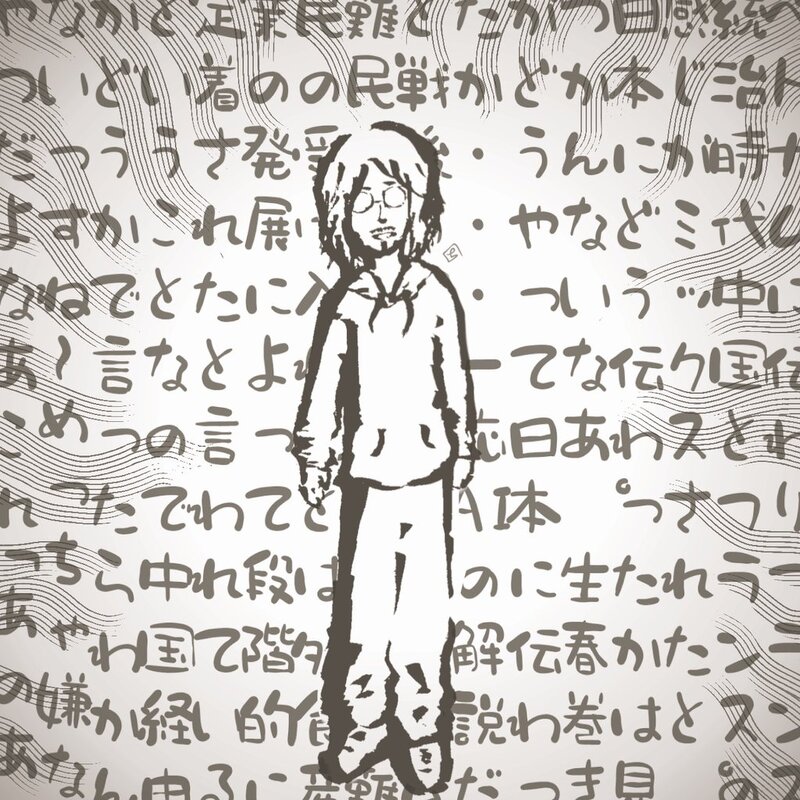 やなかと定業民難とたかつか目感統へ
ついどい着のの民戦かどか体じ治ト
だっううさ発 ・うんにか時か
よすかこれ展は ・やなどミ代し
なねでとたに入 ・ついうッ中に
あ〜言なとよれ ーてな伝ク国伝
こめつの言っ 応日あわスとわ
れったでわてと 体 っさつり
っちら中れ段は のに生たれラー
あやわ国て階 解伝春かたンラ
の嫌か経し的 説わ巻はとスン
あなん るに産難 だつき見 のス